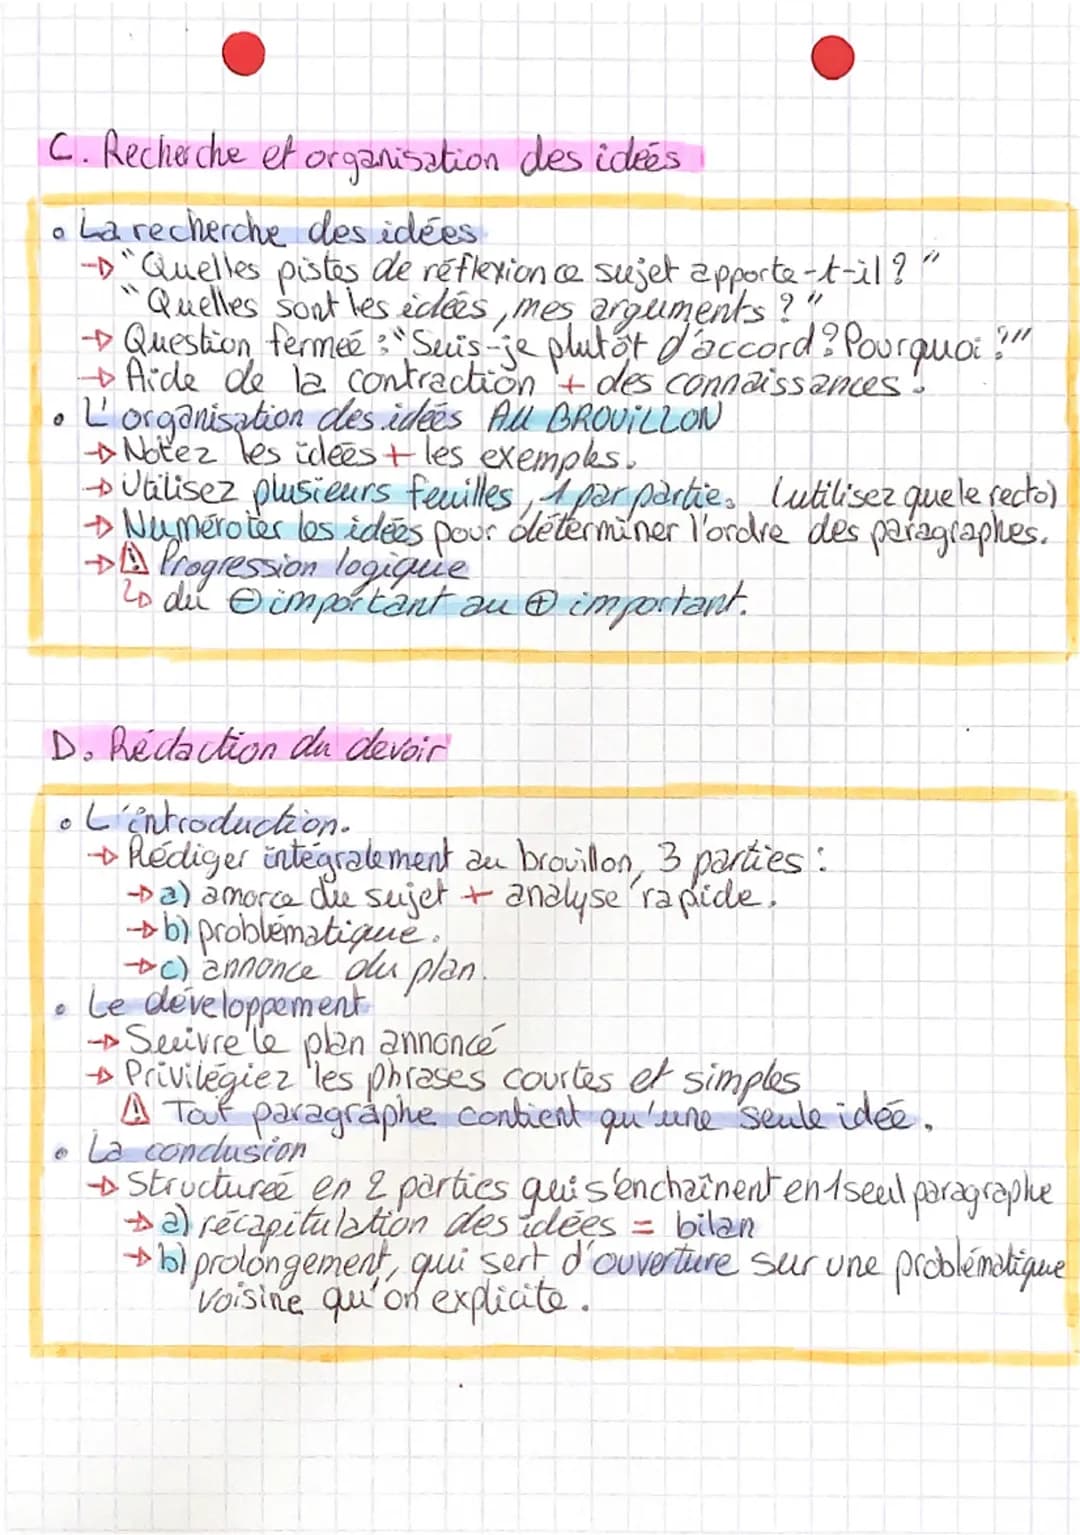 C. Recherche et organisation des ideés
• La recherche des idées
→ "Quelles pistes de réflexion ce sujet apporte-t-il ? "
"Quelles sont les ideés, mes arguments ? "
→ Question fermeé : "Suis-je plutôt d'accord ? Pourquoi ?"
→ Aide de la contraction + des connaissances.
• L'organisation des ideés AU BROUILLON
→ Notez les ideés + les exemples.
→ Utilisez plusieurs feuilles, 1 par partie. (utilisez que le recto)
→ Numéroter les ideés pour déterminer l'ordre des paragraphes.
→ ⚠ Progression logique
↳ du ⊖ important au ⊕ important.
D. Rédaction du devoir
• L'introduction.
→ Rédiger intégralement au brouillon, 3 parties :
→ a) amorce du sujet + analyse rapide.
→ b) problématique.
→ c) annonce du plan.
• Le développement
→ Suivre le plan annoncé
→ Privilégiez les phrases courtes et simples
⚠ Tout paragraphe contient qu'une seule idée.
• La conclusion
→ Structureé en 2 parties qui s'enchaînent en 1 seul paragraphe
→ a) récapitulation des idées = bilan
→ b) prolongement, qui sert d'ouverture sur une problématique
voisine qu'on explicite.